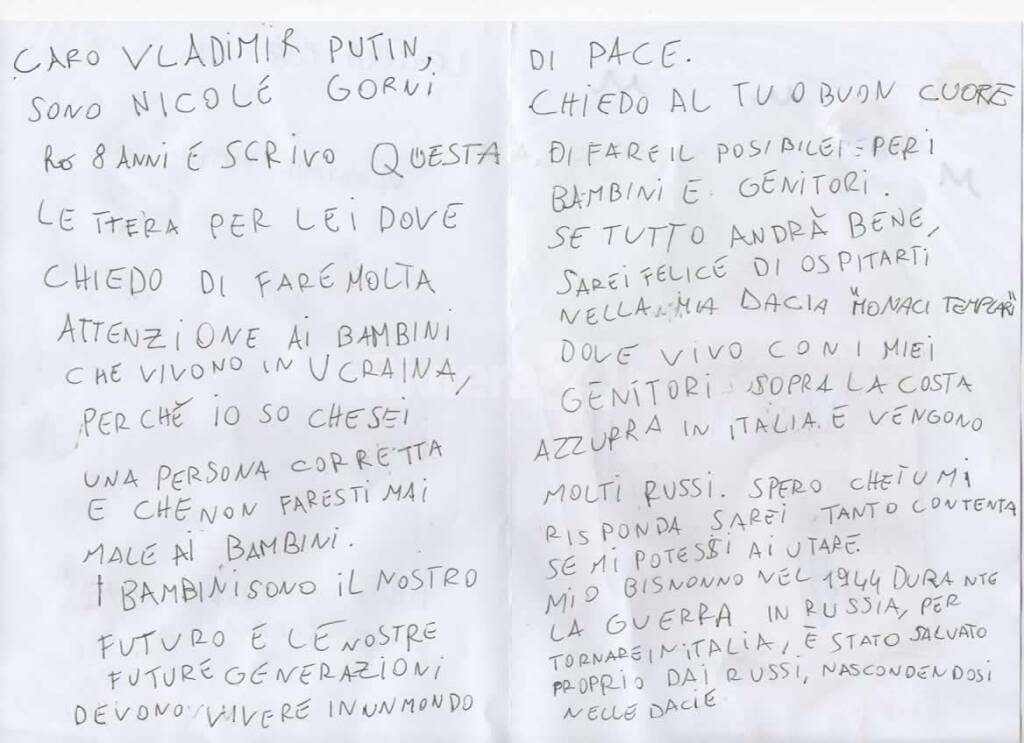 CARO VLADIMIR PUTIN,
SONO NICOLE GORNI
Ho 8 ANNI E SCRIVO QUESTA
LETTERA PER LEI DOVE
CHIEDO DI FARE MOLTA
ATTENZIONE AI BAMBINI
CHE VIVONO IN UCRAINA,
PERCHÈ IO SO CHE SEI
UNA PERSONA CORRETTA
E CHE NON FARESTI MAI
MALE AI BAMBINI.
I BAMBINI SONO IL NOSTRO
FUTURO E LE NOSTRE
FUTURE GENERAZIONI
DEVONO VIVERE IN UN MONDO
DI PACE.
CHIEDO AL TUO BUON CUORE
DI FARE IL POSIBILE PER I
BAMBINI E GENITORI.
SE TUTTO ANDRÀ BENE,
SAREI FELICE DI OSPITARTI
NELLA MIA DACIA "MONACI TEMPLARI"
DOVE VIVO CON I MIEI
GENITORI SOPRA LA COSTA
AZZURRA IN ITALIA. E VENGONO
MOLTI RUSSI. SPERO CHE TU MI
RISPONDA SAREI TANTO CONTENTA
SE MI POTESSI AIUTARE.
MIO BISNONNO NEL 1944 DURANTE
LA GUERRA IN RUSSIA, PER
TORNARE IN ITALIA, È STATO SALVATO
PROPRIO DAI RUSSI, NASCONDENDOSI
NELLE DACIE